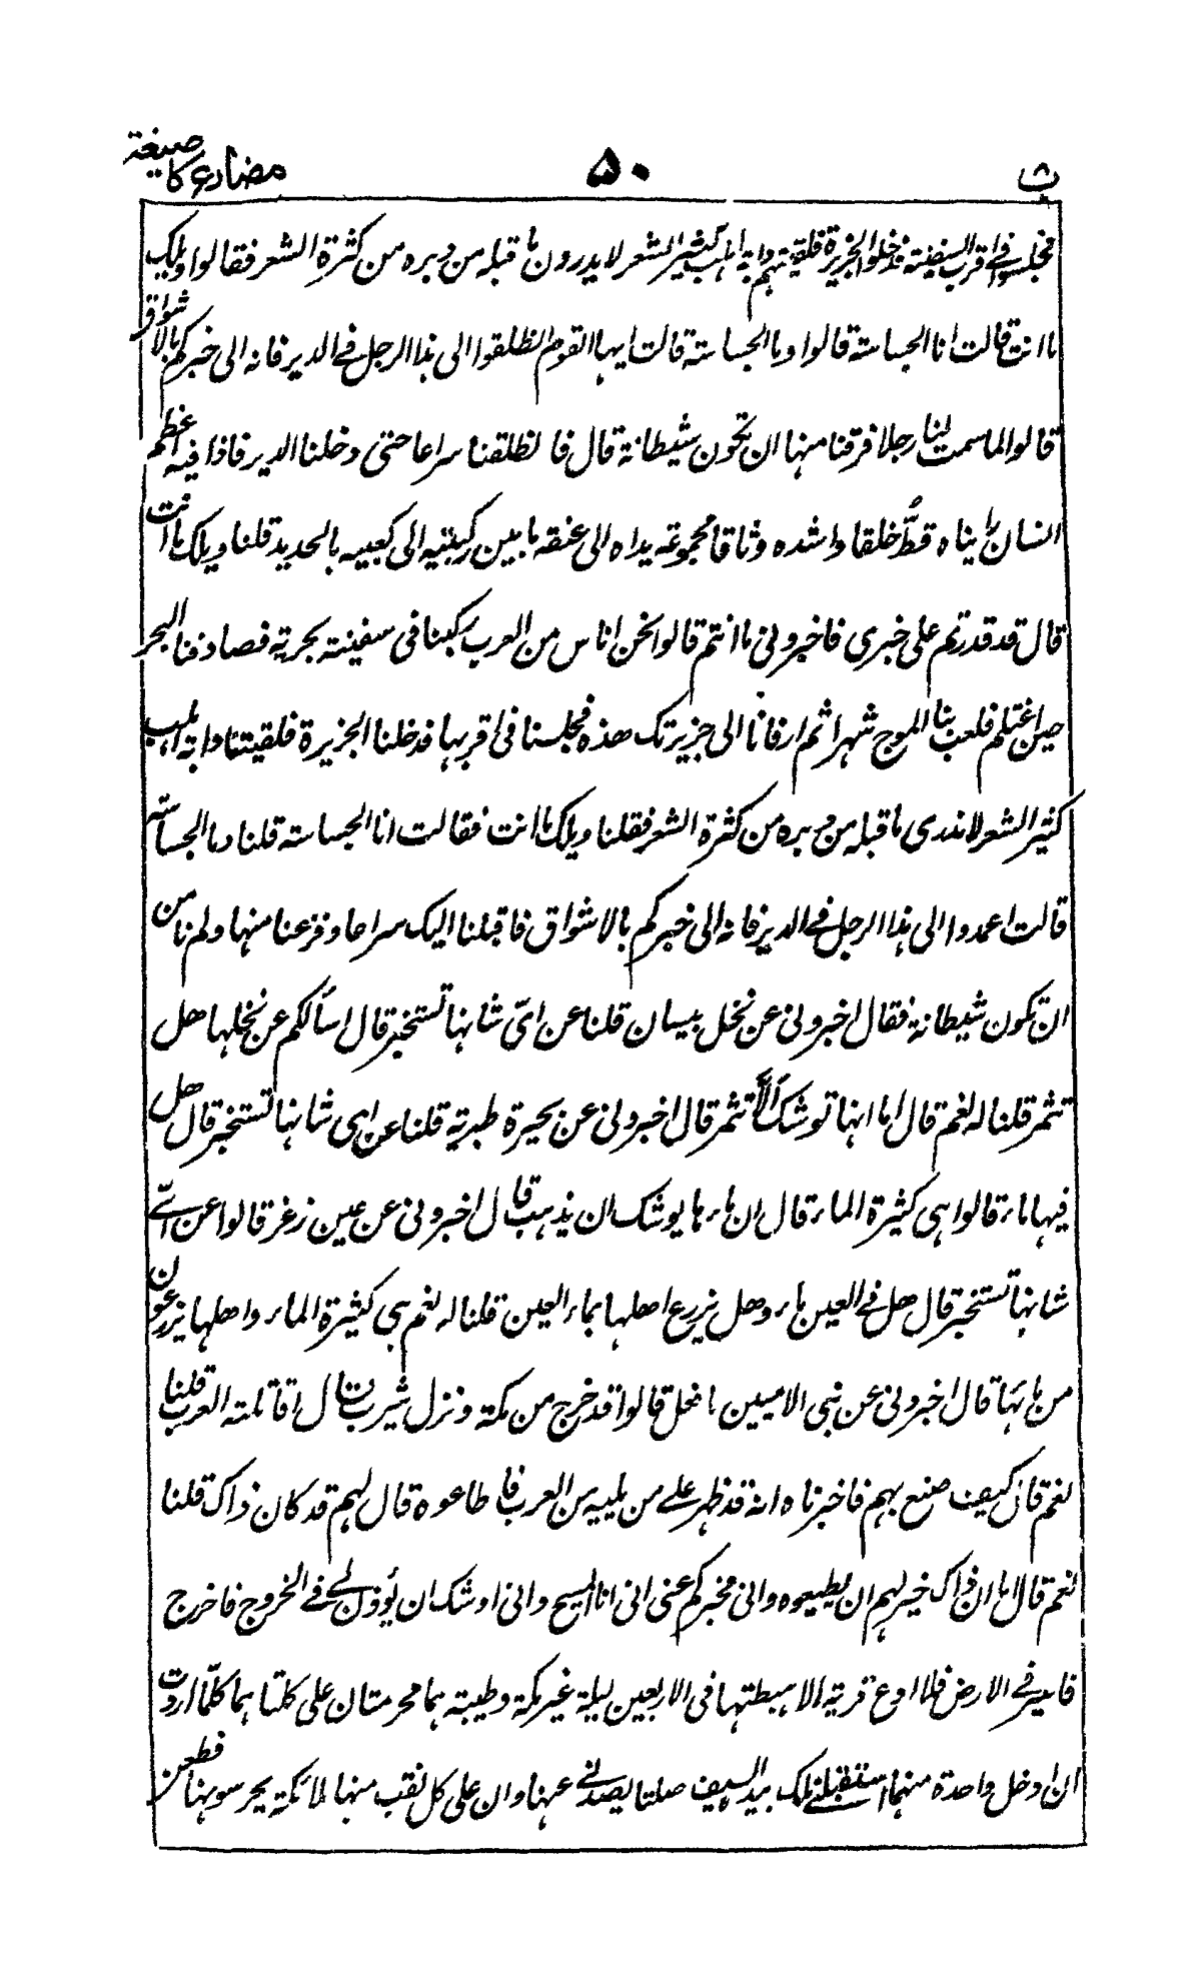 ث ۵۰ مضارع کا صیغۃ
فجلسوا فی اقرب السفینۃ فدخلوا الجزیرۃ فلقیتہم دابۃ اہلب کثیر الشعر لا یدرون ما قبلہ من دبرہ من کثرۃ الشعر فقالوا ویلک
ما انت قالت انا الجساسۃ قالوا وما الجساسۃ قالت ایہا القوم انطلقوا الی ہذا الرجل فی الدیر فانہ الی خبرکم بالاشواق
قالوا لما سمت لنا رجلا فرقنا منہا ان تکون شیطانۃ قال فانطلقنا سراعا حتی دخلنا الدیر فاذا فیہ اعظم
انسان رایناہ قطُّ خلقا واشدہ وثاقا مجموعۃ یداہ الی عنقہ ما بین رکبتیہ الی کعبیہ بالحدید قلنا ویلک ما انت
قال قد قدرتم علی خبری فاخبرونی ما انتم قالوا نحن اناس من العرب رکبنا فی سفینۃ بحریۃ فصادفنا البحر
حین اغتلم فلعب بنا الموج شہرا ثم ارفانا الی جزیرتک ھذہ فجلسنا فی اقربہا فدخلنا الجزیرۃ فلقیتنا دابۃ اہلب
کثیر الشعر لا ندری ما قبلہ من دبرہ من کثرۃ الشعر فقلنا ویلک ما انت فقالت انا الجساسۃ قلنا وما الجساسۃ
قالت اعمدوا الی ہذا الرجل فی الدیر فانہ الی خبرکم بالاشواق فاقبلنا الیک سراعا وفزعنا منہا ولم نامن
ان تکون شیطانۃ فقال اخبرونی عن نخل بیسان قلنا عن ایّ شانہا تستخبر قال اسألکم عن نخلہا ھل
تثمر قلنا لہ نعم قال اما انہا توشک الّا تثمر قال اخبرونی عن بحیرۃ طبریۃ قلنا عن ای شانہا تستخبر قال ھل
فیہا ماء قالوا ہی کثیرۃ الماء قال ان ماءھا یوشک ان یذہب قال اخبرونی عن عین زغر قالوا عن ایّ
شانہا تستخبر قال ھل فی العین ماء وھل یزرع اھلہا بماء العین قلنا لہ نعم ہی کثیرۃ الماء واھلہا یزرعون
من مائہا قال اخبرونی عن نبی الامیین ما فعل قالوا قد خرج من مکۃ ونزل یثرب قال اقاتلتہ العرب قلنا
نعم قال کیف صنع بہم فاخبرناہ انہ قد ظہر علی من یلیہ من العرب فاطاعوہ قال لہم قد کان ذاک قلنا
نعم قال اما ان ذاک خیر لہم ان یطیعوہ وانی مخبرکم عنی انی انا المسیح وانی اوشک ان یؤذن لی فی الخروج فاخرج
فاسیر فی الارض فلا ادع قریۃ الا ہبطتہا فی الاربعین لیلۃ غیر مکۃ وطیبۃ ہما محرمتان علی کلتاہما کلّما اردت
ان ادخل واحدۃ منہما استقبلنی ملک بیدہ السیف صلتا یصدنی عنہا وان علی کل نقب منہا ملائکۃ یحرسونہا فطعن